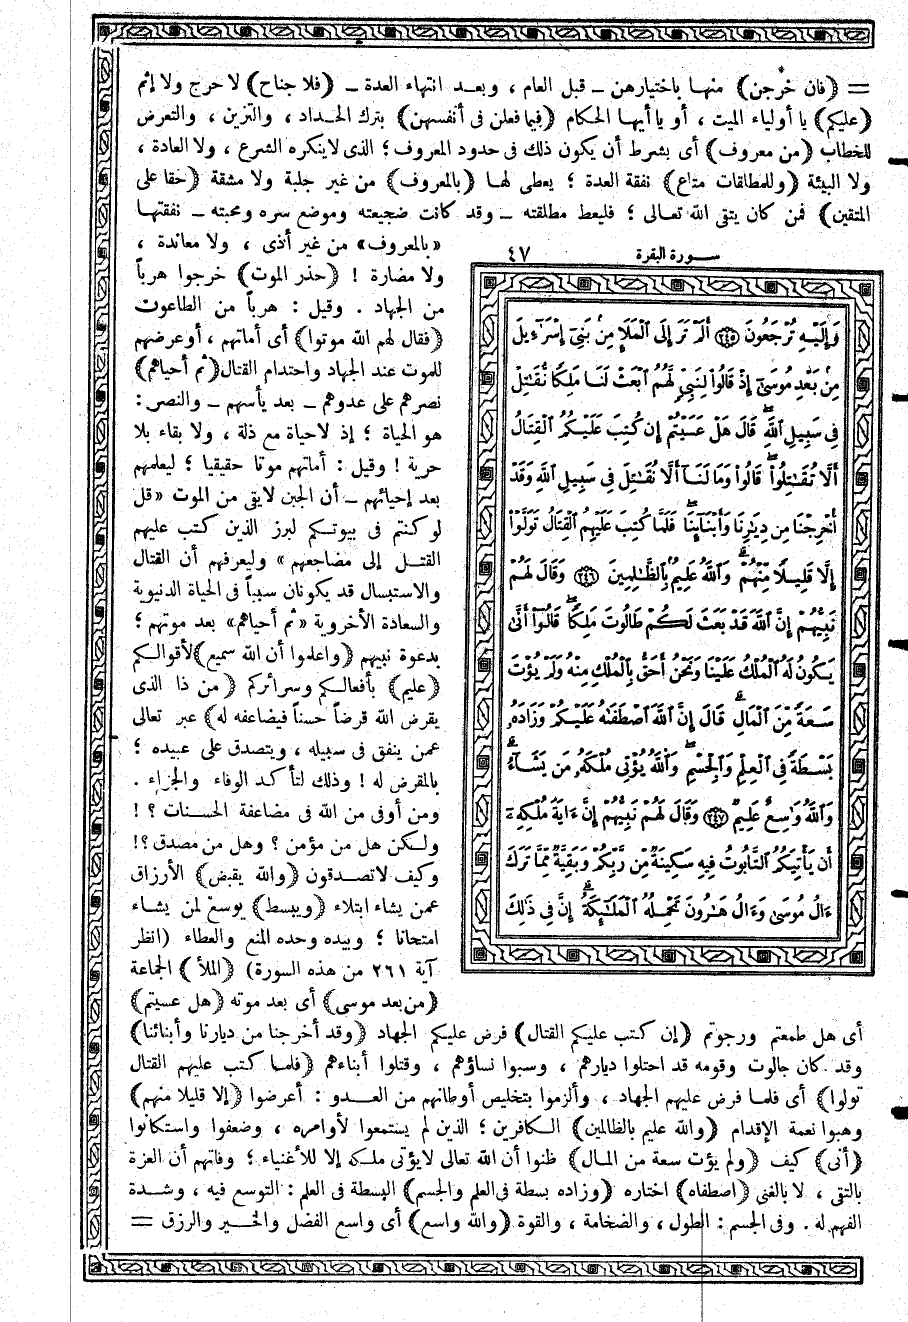 = ﴿فان خرجن﴾ منها باختيارهن ــ قبل العام ، وبعد انتهاء العدة ــ ﴿فلا جناح﴾ لا حرج ولا إثم
﴿عليكم﴾ يا أولياء الميت ، أو يا أيها الحكام ﴿فيما فعلن فى أنفسهن﴾ بترك الحداد ، والتزين ، والتعرض
للخطاب ﴿من معروف﴾ أى بشرط أن يكون ذلك فى حدود المعروف ؛ الذى لاينكره الشرع ، ولا العادة ،
ولا البيئة ﴿وللمطلقات متاع﴾ نفقة العدة ؛ يعطى لها ﴿بالمعروف﴾ من غير جلبة ولا مشقة ﴿حقا على
المتقين﴾ فمن كان يتقى الله تعالى ؛ فليعط مطلقته ــ وقد كانت ضجيعته وموضع سره ومحبته ــ نفقتها
«بالمعروف» من غير أذى ، ولا معاندة ،
ولا مضارة ! ﴿حذر الموت﴾ خرجوا هرباً
من الجهاد . وقيل : هرباً من الطاعون
﴿فقال لهم الله موتوا﴾ أى أماتهم ، أوعرضهم
للموت عند الجهاد واحتدام القتال ﴿ثم أحياهم﴾
نصرهم على عدوهم ــ بعد يأسهم ــ والنصر :
هو الحياة ؛ إذ لاحياة مع ذلة ، ولا بقاء بلا
حرية ! وقيل : أماتهم موتا حقيقيا ؛ ليعلمهم
بعد إحيائهم ــ أن الجبن لايقى من الموت «قل
لو كنتم فى بيوتكم لبرز الذين كتب عليهم
القتل إلى مضاجعهم» وليعرفهم أن القتال
والاستبسال قد يكونان سبباً فى الحياة الدنيوية
والسعادة الأخروية «ثم أحياهم» بعد موتهم ؛
بدعوة نبيهم ﴿واعلموا أن الله سميع﴾ لأقوالكم
﴿عليم﴾ بأفعالكم وسرائركم ﴿من ذا الذى
يقرض الله قرضاً حسناً فيضاعفه له﴾ عبر تعالى
عمن ينفق فى سبيله ، ويتصدق على عبيده ؛
بالمقرض له ! وذلك لتأكد الوفاء والجزاء .
ومن أوفى من الله فى مضاعفة الحسنات ؟ !
ولكن هل من مؤمن ؟ وهل من مصدق ؟!
وكيف لاتصدقون ﴿والله يقبض﴾ الأرزاق
عمن يشاء ابتلاء ﴿ويبسط﴾ يوسع لمن يشاء
امتحانا ؛ وبيده وحده المنع والعطاء (انظر
آية ٢٦١ من هذه السورة) ﴿الملأ﴾ الجماعة
﴿من بعد موسى﴾ أى بعد موته ﴿هل عسيتم﴾
سورة البقرة ٤٧
وَإِلَيْهِ تُرْجَعُونَ ٢٤٥ أَلَمْ تَرَ إِلَى الْمَلَإِ مِنْ بَنِي إِسْرَٰٓءِيلَ
مِنْ بَعْدِ مُوسَىٰٓ إِذْ قَالُوا لِنَبِيٍّ لَهُمُ ابْعَثْ لَنَا مَلِكًا نُقَٰتِلْ
فِي سَبِيلِ اللَّهِ قَالَ هَلْ عَسَيْتُمْ إِنْ كُتِبَ عَلَيْكُمُ الْقِتَالُ
أَلَّا تُقَٰتِلُوا قَالُوا وَمَا لَنَآ أَلَّا نُقَٰتِلَ فِي سَبِيلِ اللَّهِ وَقَدْ
أُخْرِجْنَا مِنْ دِيَٰرِنَا وَأَبْنَآئِنَا فَلَمَّا كُتِبَ عَلَيْهِمُ الْقِتَالُ تَوَلَّوْا
إِلَّا قَلِيلًا مِنْهُمْ وَاللَّهُ عَلِيمٌ بِالظَّٰلِمِينَ ٢٤٦ وَقَالَ لَهُمْ
نَبِيُّهُمْ إِنَّ اللَّهَ قَدْ بَعَثَ لَكُمْ طَالُوتَ مَلِكًا قَالُوٓا أَنَّىٰ
يَكُونُ لَهُ الْمُلْكُ عَلَيْنَا وَنَحْنُ أَحَقُّ بِالْمُلْكِ مِنْهُ وَلَمْ يُؤْتَ
سَعَةً مِنَ الْمَالِ قَالَ إِنَّ اللَّهَ اصْطَفَىٰهُ عَلَيْكُمْ وَزَادَهُ
بَسْطَةً فِي الْعِلْمِ وَالْجِسْمِ وَاللَّهُ يُؤْتِي مُلْكَهُ مَنْ يَشَآءُ
وَاللَّهُ وَٰسِعٌ عَلِيمٌ ٢٤٧ وَقَالَ لَهُمْ نَبِيُّهُمْ إِنَّ ءَايَةَ مُلْكِهِٓ
أَنْ يَأْتِيَكُمُ التَّابُوتُ فِيهِ سَكِينَةٌ مِنْ رَبِّكُمْ وَبَقِيَّةٌ مِمَّا تَرَكَ
ءَالُ مُوسَىٰ وَءَالُ هَٰرُونَ تَحْمِلُهُ الْمَلَٰٓئِكَةُ إِنَّ فِي ذَٰلِكَ
أى هل طمعتم ورجوتم ﴿إن كتب عليكم القتال﴾ فرض عليكم الجهاد ﴿وقد أخرجنا من ديارنا وأبنائنا﴾
وقد كان جالوت وقومه قد احتلوا ديارهم ، وسبوا نساؤهم ، وقتلوا أبناءهم ﴿فلما كتب عليهم القتال
تولوا﴾ أى فلما فرض عليهم الجهاد ، وألزموا بتخليص أوطانهم من العدو : أعرضوا ﴿إلا قليلا منهم﴾
وهبوا نعمة الإقدام ﴿والله عليم بالظالمين﴾ الكافرين ؛ الذين لم يستمعوا لأوامره ، وضعفوا واستكانوا
﴿أنى﴾ كيف ﴿ولم يؤت سعة من المال﴾ ظنوا أن الله تعالى لايؤتى ملكه إلا للأغنياء ؛ وفاتهم أن العزة
بالتقى ، لا بالغنى ﴿اصطفاه﴾ اختاره ﴿وزاده بسطة فى العلم والجسم﴾ البسطة فى العلم : التوسع فيه ، وشدة
الفهم له . وفى الجسم : الطول ، والضخامة ، والقوة ﴿والله واسع﴾ أى واسع الفضل والخير والرزق =